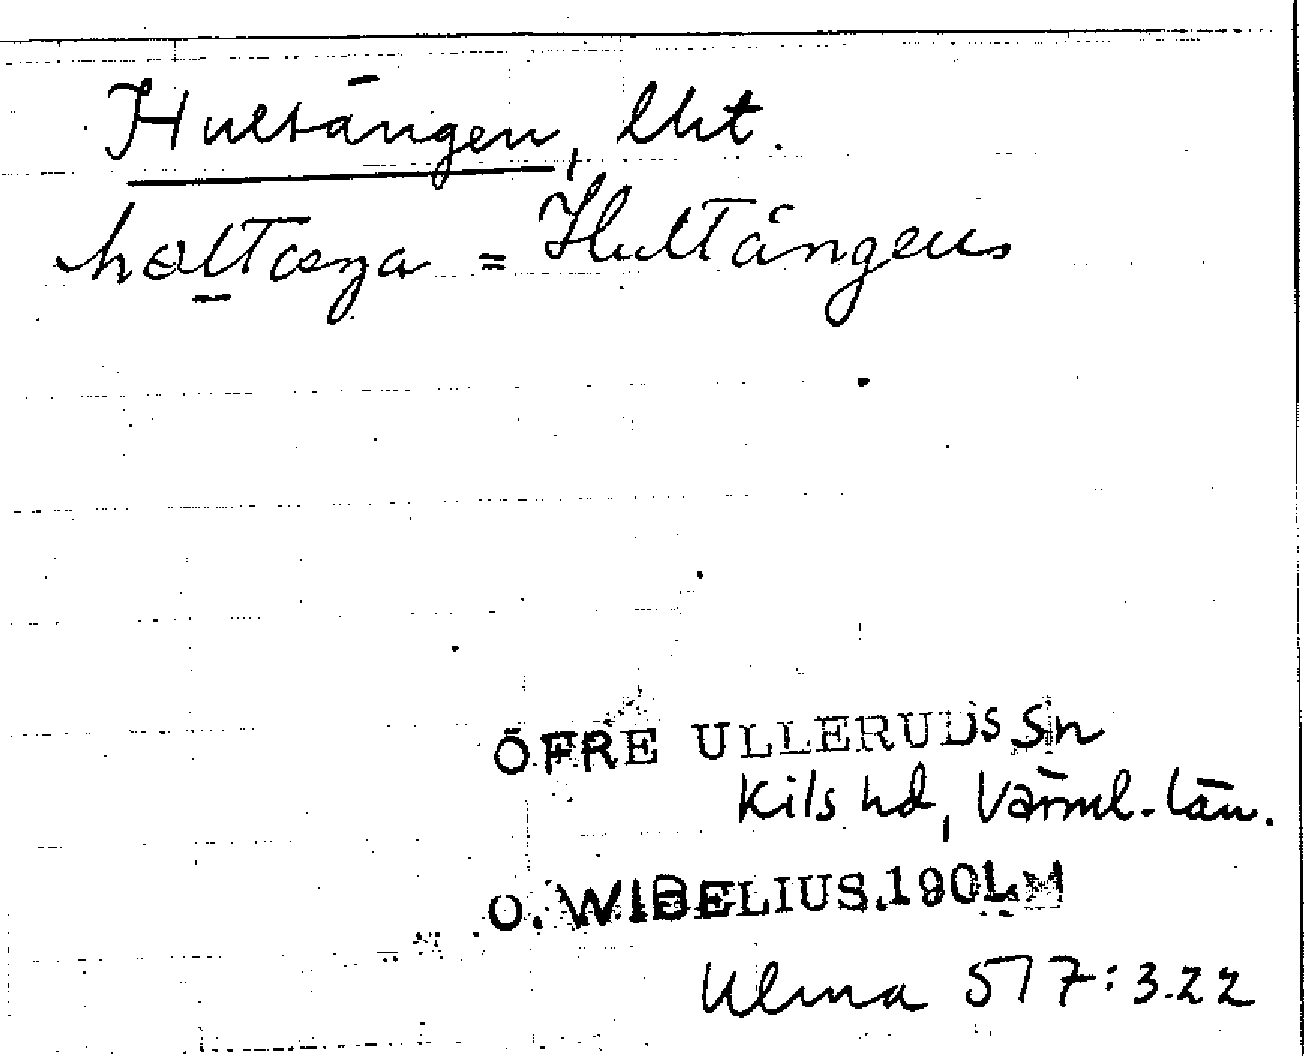 Hultängen, lht.
håltæŋa = Hultängen
ÖFRE ULLERUDS Sn
Kils hd, Värml. län.
O. WIBELIUS.1901
Ulma 517:3.22